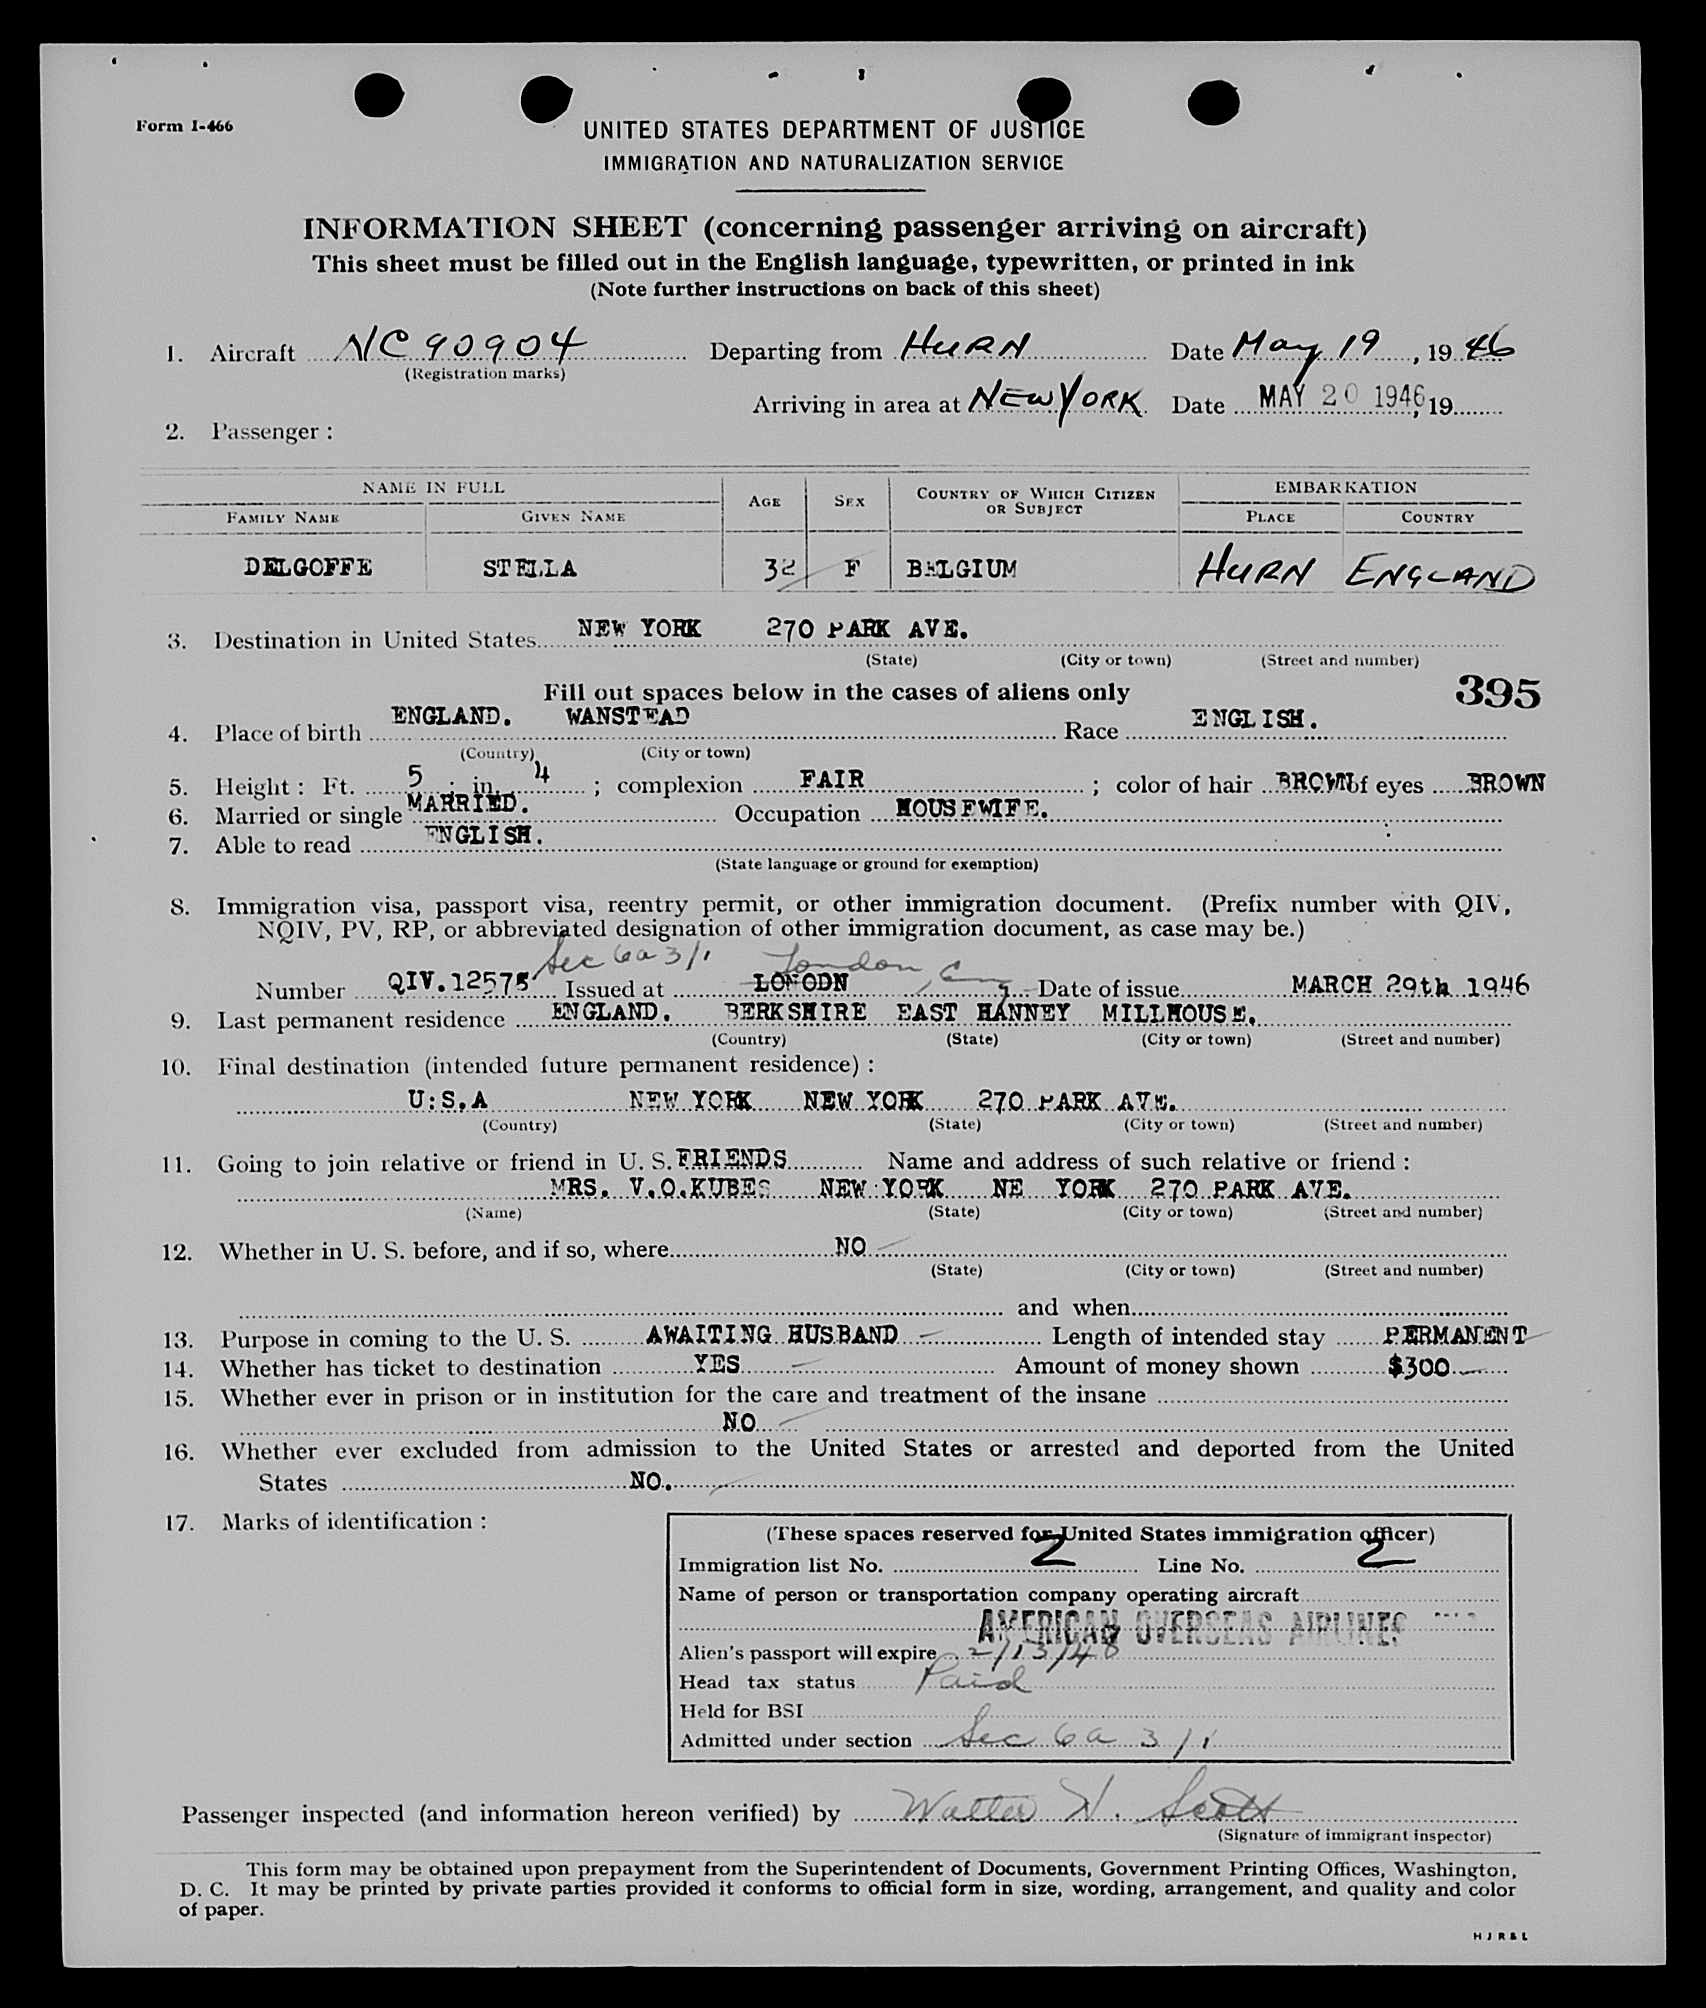 Form I-466
UNITED STATES DEPARTMENT OF JUSTICE
IMMIGRATION AND NATURALIZATION SERVICE
INFORMATION SHEET (concerning passenger arriving on aircraft)
This sheet must be filled out in the English language, typewritten, or printed in ink
(Note further instructions on back of this sheet)
1. Aircraft NC 90904 Departing from HURN Date May 19, 1946
(Registration marks)
Arriving in area at NEW YORK Date MAY 20 1946, 19
2. Passenger :
NAME IN FULL AGE SEX COUNTRY OF WHICH CITIZEN OR SUBJECT EMBARKATION
FAMILY NAME GIVEN NAME PLACE COUNTRY
DELGOFFE STELLA 32 F BELGIUM HURN ENGLAND
3. Destination in United States NEW YORK 270 PARK AVE.
(State) (City or town) (Street and number)
Fill out spaces below in the cases of aliens only 395
4. Place of birth ENGLAND. WANSTEAD Race ENGLISH.
(Country) (City or town)
5. Height : Ft. 5 ; in. 4 ; complexion FAIR ; color of hair BROWN of eyes BROWN
6. Married or single MARRIED. Occupation HOUSEWIFE.
7. Able to read ENGLISH.
(State language or ground for exemption)
8. Immigration visa, passport visa, reentry permit, or other immigration document. (Prefix number with QIV,
NQIV, PV, RP, or abbreviated designation of other immigration document, as case may be.)
Sec 6a 3/1 London, Eng
Number QIV.12575 Issued at LONODN Date of issue MARCH 29th 1946
9. Last permanent residence ENGLAND. BERKSHIRE EAST HANNEY MILLHOUSE.
(Country) (State) (City or town) (Street and number)
10. Final destination (intended future permanent residence) :
U:S.A NEW YORK NEW YORK 270 PARK AVE.
(Country) (State) (City or town) (Street and number)
11. Going to join relative or friend in U. S. FRIENDS Name and address of such relative or friend :
MRS. V.O.KUBES NEW YORK NE YORK 270 PARK AVE.
(Name) (State) (City or town) (Street and number)
12. Whether in U. S. before, and if so, where NO
(State) (City or town) (Street and number)
and when
13. Purpose in coming to the U. S. AWAITING HUSBAND Length of intended stay PERMANENT
14. Whether has ticket to destination YES Amount of money shown $300
15. Whether ever in prison or in institution for the care and treatment of the insane
NO
16. Whether ever excluded from admission to the United States or arrested and deported from the United
States NO.
17. Marks of identification :
(These spaces reserved for United States immigration officer)
Immigration list No. 2 Line No. 2
Name of person or transportation company operating aircraft
AMERICAN OVERSEAS AIRLINES
Alien's passport will expire 2/13/48
Head tax status Paid
Held for BSI
Admitted under section Sec 6a 3/1
Passenger inspected (and information hereon verified) by Walter H. Scott
(Signature of immigrant inspector)
This form may be obtained upon prepayment from the Superintendent of Documents, Government Printing Offices, Washington,
D. C. It may be printed by private parties provided it conforms to official form in size, wording, arrangement, and quality and color
of paper.
H J R & L